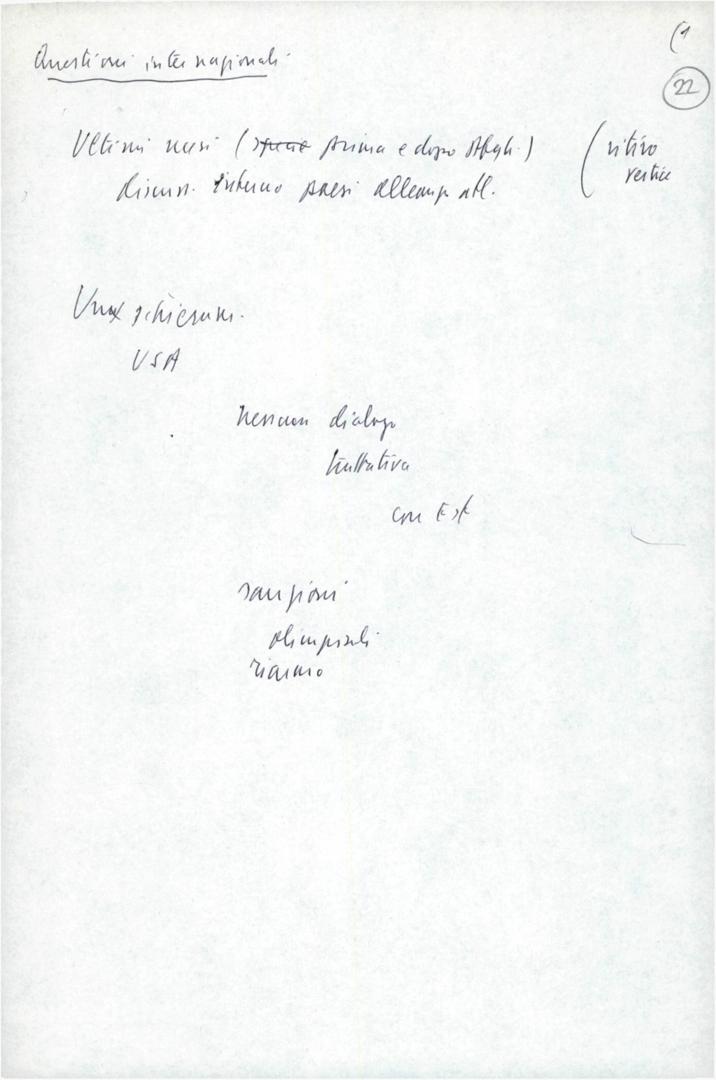 (1
22
Questioni internazionali
Ultimi mesi (specie prima e dopo Afgh.) (ritiro
vertice
discuss. interno paesi alleanza atl.
schieram.
USA
nessun dialogo
trattativa
con Est
sanzioni
olimpiadi
riarmo